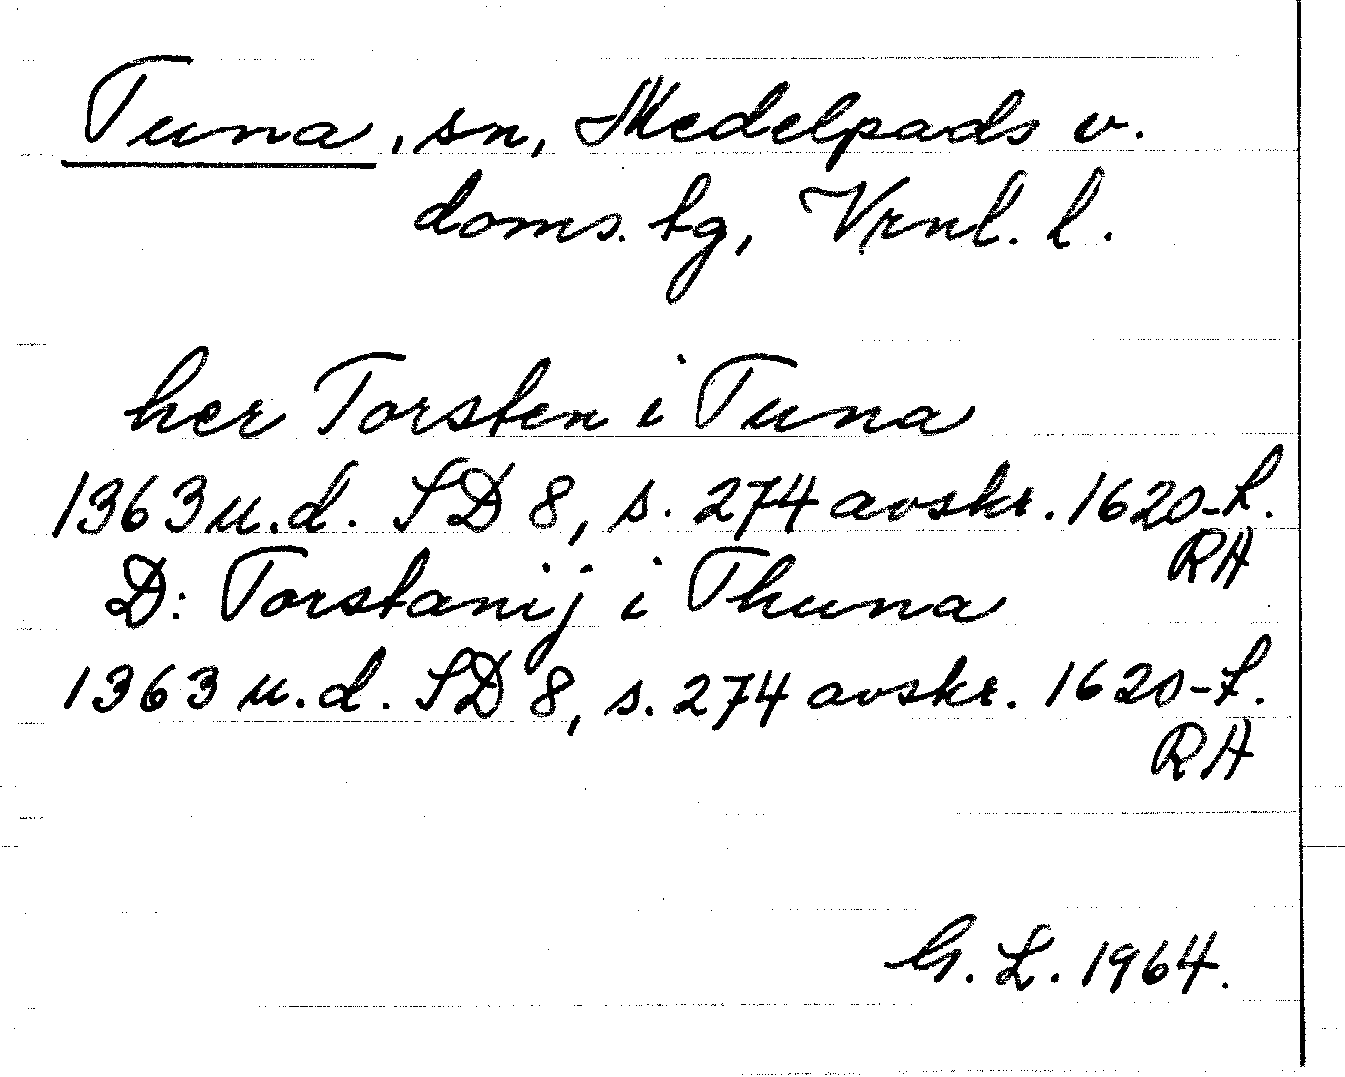 Tuna, sn, Medelpads v.
doms. tg, Vrnl. l.
her Torsten i Tuna
1363 u.d. SD 8, s. 274 avskr. 1620-t.
RA
D: Torstanij i Thuna
1363 u.d. SD 8, s. 274 avskr. 1620-t.
RA
G. L. 1964.